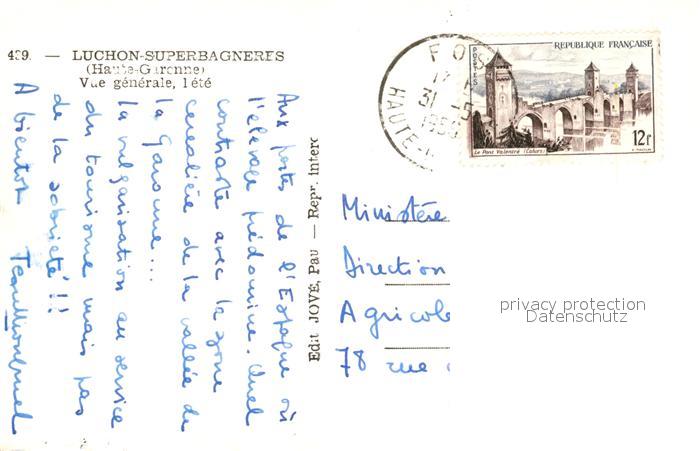 439. — LUCHON-SUPERBAGNERES
(Haute-Garonne)
Vue générale, l'été
Aux portes de l'Espagne où
l'élevage prédomine. Quel
contraste avec la zone
céréalière de la vallée de
la Garonne...
la vulgarisation au service
du tourisme mais pas
de la sobriété !!
A bientôt
Edit JOVÉ, Pau — Repr. interd
FOS
31 -5
HAUTE-
REPUBLIQUE FRANÇAISE
POSTES
Le Pont Valentré (Cahors)
12f
Ministère
Direction
Agricole
78 rue
privacy protection
Datenschutz